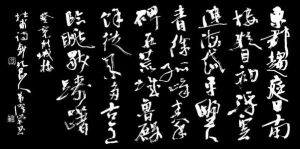 東郡趨庭日南
樓縱目初浮雲
連海岱平野入
青徐孤嶂秦
碑在荒城魯殿
餘從來多古意
臨眺獨躊躇
登兗州城樓